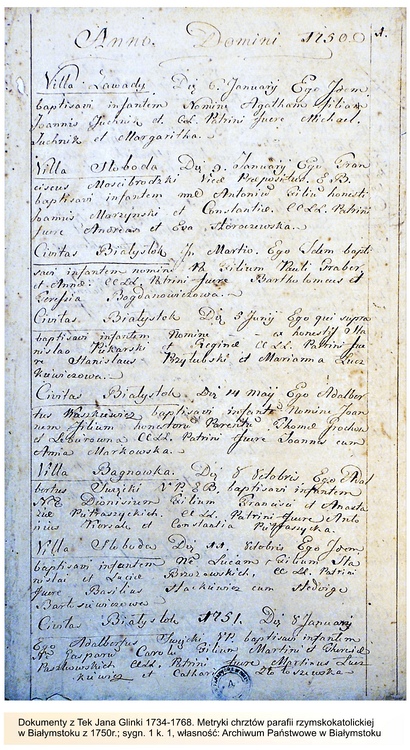 Anno Domini 1750 1.
Villa Zawady Die 6 January Ego Idem
baptisavi infantem Nomine Agatham filiam
Joannis Juchnik et CCLL Patrini fuere Michael
Juchnik et Margaritha
Villa Sloboda Die January Ego Fran
ciscus Moscibrodzki Vice Praepositus E. B.
baptisavi infantem nne Antoniu filiu honesti
Joannis Marzynski et Constantiae CCLL Patrini
fuere Andreas et Eva
Civitas Białystok In Martio Ego Idem bapti
savi infantem nomine filium Pauli Graber
et Annae CCLL Patrini fuere Bartholomeus et
Bogdanowiczowa
Civitas Białystok Die 3 Junij Ego qui supra
baptisavi infantem Nomine honesti Sta
nislao Piekarski et Reginae CCLL Patrini fue
re Stanislaus Przytubski et Marianna Lucz
kiewiczowa
Civitas Białystok Die 14 Maij Ego Adalber
tus Waskiewicz baptisavi infante Nomine Joan
nem filium honestoru Parentu Thomae
et CCLL Patrini fuere Joannes cum
Anna Markowska
Villa Bagnowka Die 8 Octobris Ego Adal
bertus V P E B. baptisavi infantem
NE Dionisium filium Francisci et Anasta
siae Pietraszyckich CCLL Patrini fuere Anto
nius et Constantia
Villa Sloboda Die 11 Octobris Ego Idem
baptisavi infantem Ne Lucam filium Sta
nislai et Luciae Brzozowskich CCLL Patrini
fuere Basilius Stackiewicz cum Hedvige
Bartosiewiczowa
Civitas Białystok 1751 Die 8 January
Ego Adalbertus VP. baptisavi infantem
Ne Gasparu Carolu filium Martini et Theresiae
CCLL Patrini fuere Martinus Lucz
kiewicz et Cathar
A
Dokumenty z Tek Jana Glinki 1734-1768. Metryki chrztów parafii rzymskokatolickiej
w Białymstoku z 1750r.; sygn. 1 k. 1, własność: Archiwum Państwowe w Białymstoku